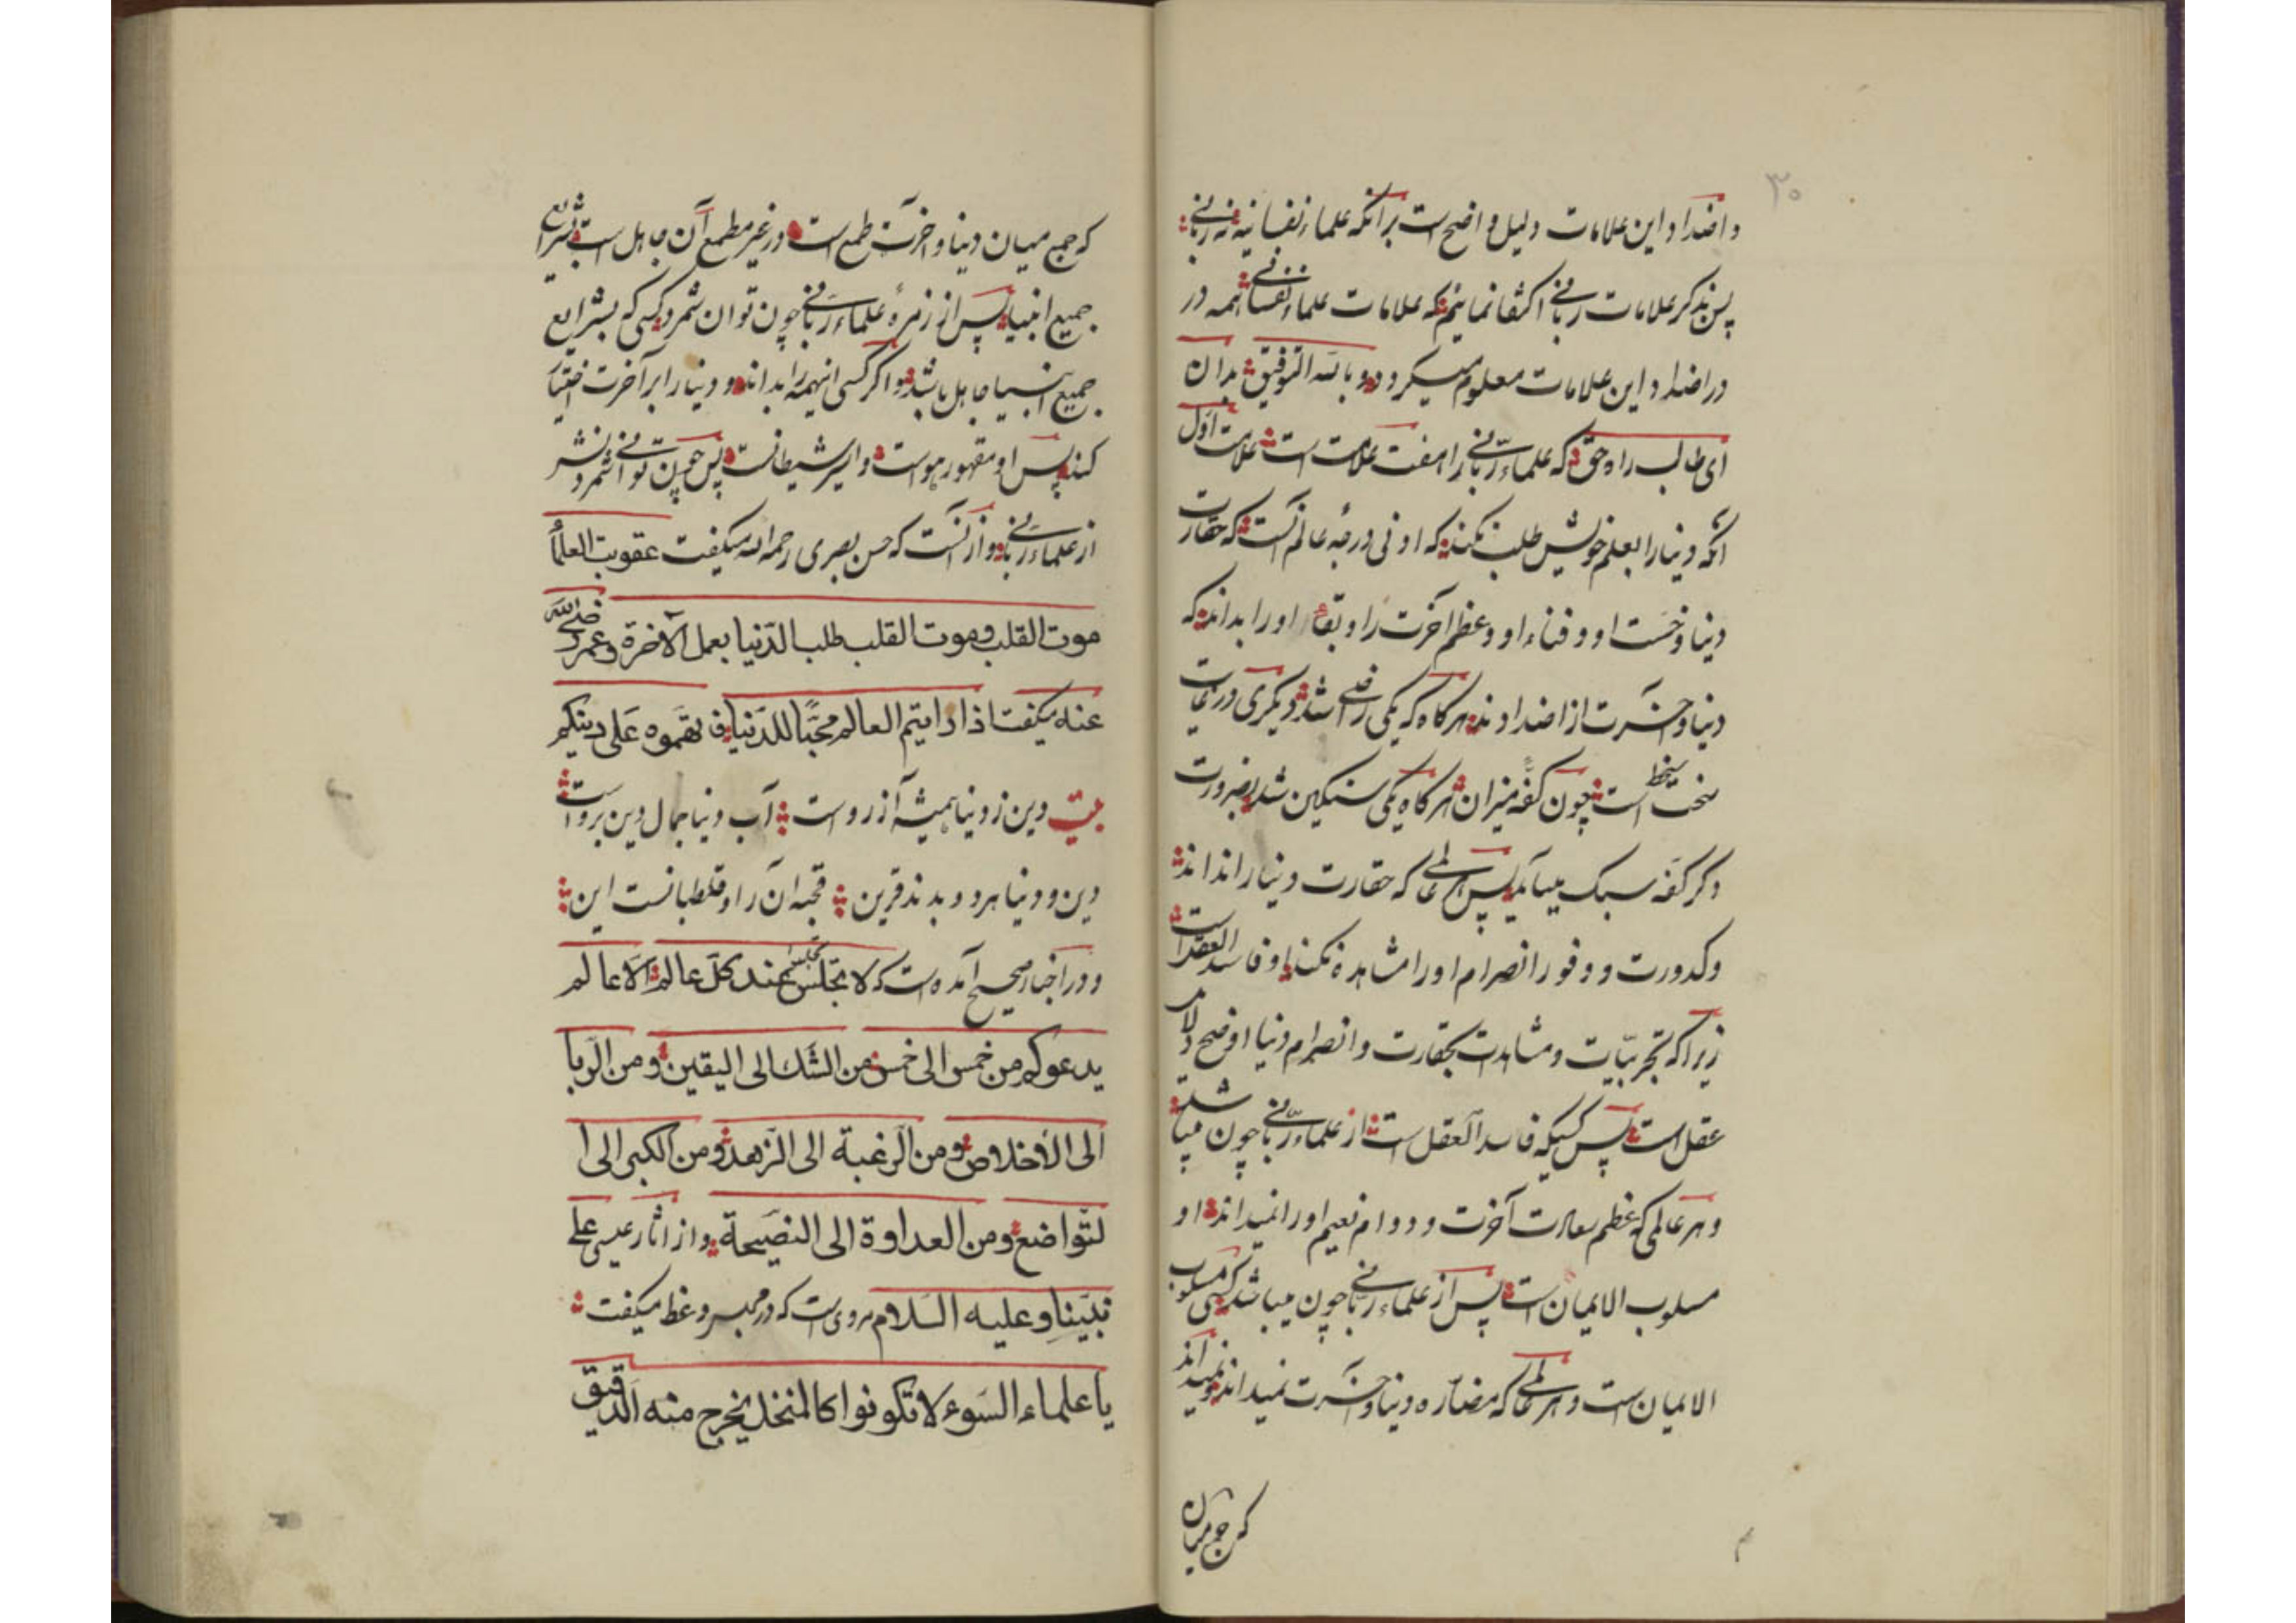 ۳۰
واضداد این علامات دلیل واضح است برآنکه علماء نفسانیه نه ربانی
پس بذکر علامات ربانی اکتفا نمائیم که علامات علماء نفسانی همه در
در اضداد این علامات معلوم میکردد وبالله التوفیق بدان
ای طالب راه حق که علماء ربانی را هفت علامت است علامت اول
آنکه دنیا را بعلم خویش طلب نکند که ادنی درجهٔ عالم آنست که حقارت
دنیا وخست او وفناء او وعظم آخرت را وبقاء او را بداند که
دنیا وآخرت از اضدادند هرکاه که یکی راضی شد دیکری در غایت
سخط است چون کفهٔ میزان هرکاه یکی سنکین شد بضرورت
دکر کفه سبک میآید پس هر عالمی که حقارت دنیا را نداند
وکدورت ووفور انصرام او را مشاهده نکند او فاسد العقل است
زیرا که تجربیات ومشاهدت بحقارت وانصرام دنیا اوضح دلایل
عقل است پس کسیکه فاسد العقل است از علماء ربانی چون میباشد
وهر عالمی که عظم سعادت آخرت ودوام نعیم او را نمیداند او
مسلوب الایمان است پس از علماء ربانی چون میباشد کسی مسلوب
الایمان است وهر عالمی که مضاره دنیا وآخرت نمیداند ونمیداند
که جمع میان
که جمع میان دنیا وآخرت طمع است در غیر مطمع آن جاهل است بشرایع
جمیع انبیا پس از زمرهٔ علماء ربانی چون توان شمرد کسی که بشرایع
جمیع انبیا جاهل باشد واکر کسی اینهمه را بداند ودنیا را بر آخرت اختیار
کند پس او مقهور هواست واسیر شیطانست پس چون توانی شمردنش
از علماء ربانی واز آنست که حسن بصری رحمه الله میکفت عقوبت العلمأ
موت القلب وموت القلب طلب الدنیا بعمل الآخرة وعمر رضی الله
عنه میکفت اذا رایتم العالم محبًا للدنیا فاتهموه علی دینکم
بیت دین ز دنیا همیشه آزرو است آب دنیا جمال دین برواست
دین ودنیا هر دو بدند قرین قحبه آن را و قلطبانست این
ودر اخبار صحیح آمده است که لا تجلس تجلس عند کل عالم الا عالم
یدعوکم من خمس الی خمس من الشک الی الیقین ومن الریا
الی الأخلاص ومن الرغبة الی الزهد ومن الکبر الی ا
لتواضع ومن العداوة الی النصیحة واز اثار عیسی علی
نبینا وعلیه السلام مروی است که در ممبر وعظ میکفت
یا علماء السوء لا تکونوا کالمنخل یخرج منه الدقیق